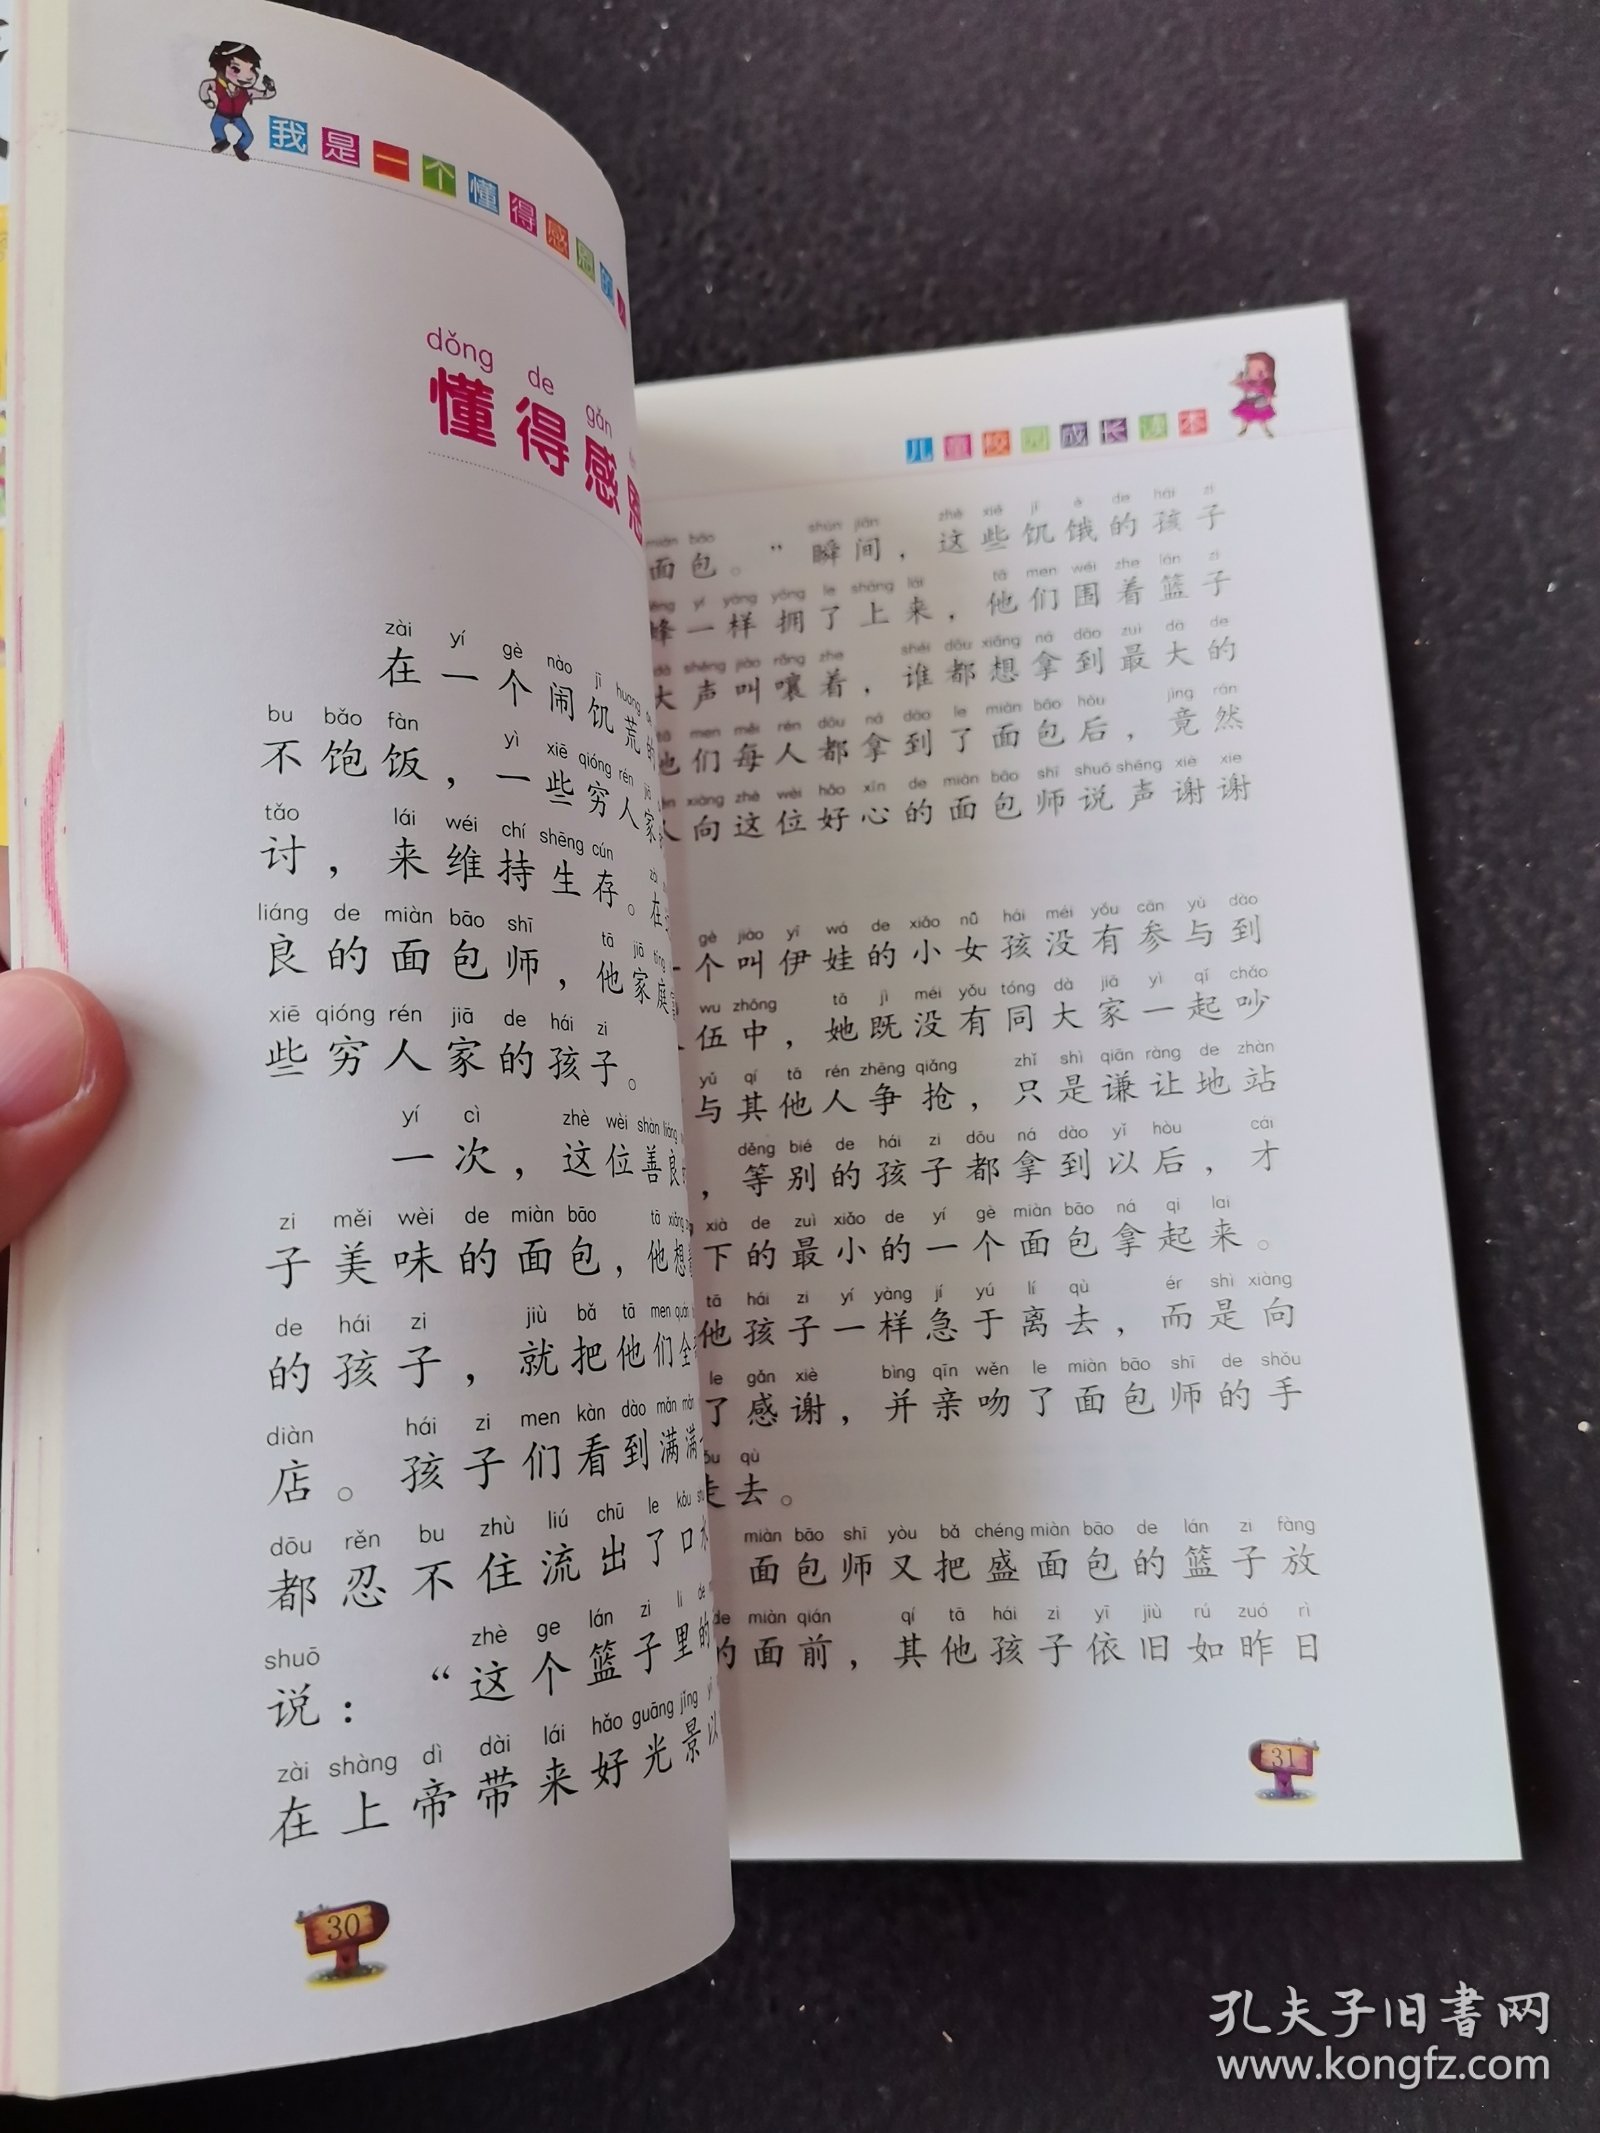 我是一个懂得感恩的
dǒng de gǎn
懂得感恩
zài yí gè nào jī huang
在一个闹饥荒的
bu bǎo fàn yì xiē qióng rén
不饱饭，一些穷人家
tǎo lái wéi chí shēng cún
讨，来维持生存。在
liáng de miàn bāo shī tā jiā tíng
良的面包师，他家庭
xiē qióng rén jiā de hái zi
些穷人家的孩子。
yí cì zhè wèi shàn liáng
一次，这位善良
zi měi wèi de miàn bāo tā xiǎng
子美味的面包，他想
de hái zi jiù bǎ tā men quán
的孩子，就把他们全
diàn hái zi men kàn dào mǎn mǎn
店。孩子们看到满满
dōu rěn bu zhù liú chū le kǒu
都忍不住流出了口水
shuō zhè ge lán zi li de
说：“这个篮子里的
zài shàng dì dài lái hǎo guāng jǐng yǐ
在上帝带来好光景以
30
儿童校园成长读本
miàn bāo shùn jiān zhè xiē jī è de hái zi
面包。”瞬间，这些饥饿的孩子
yí yàng yōng le shàng lái tā men wéi zhe lán zi
蜂一样拥了上来，他们围着篮子
dà shēng jiào rǎng zhe shéi dōu xiǎng ná dào zuì dà de
大声叫嚷着，谁都想拿到最大的
tā men měi rén dōu ná dào le miàn bāo hòu jìng rán
他们每人都拿到了面包后，竟然
xiàng zhè wèi hǎo xīn de miàn bāo shī shuō shēng xiè xie
人向这位好心的面包师说声谢谢
gè jiào yī wá de xiǎo nǚ hái méi yǒu cān yù dào
一个叫伊娃的小女孩没有参与到
wu zhōng tā jì méi yǒu tóng dà jiā yì qǐ chǎo
伍中，她既没有同大家一起吵
yǔ qí tā rén zhēng qiǎng zhǐ shì qiān ràng de zhàn
与其他人争抢，只是谦让地站
děng bié de hái zi dōu ná dào yǐ hòu cái
，等别的孩子都拿到以后，才
xià de zuì xiǎo de yí gè miàn bāo ná qi lai
下的最小的一个面包拿起来。
tā hái zi yí yàng jí yú lí qù ér shì xiàng
他孩子一样急于离去，而是向
le gǎn xiè bìng qīn wěn le miàn bāo shī de shǒu
了感谢，并亲吻了面包师的手
qù
走去。
miàn bāo shī yòu bǎ chéng miàn bāo de lán zi fàng
面包师又把盛面包的篮子放
de miàn qián qí tā hái zi yī jiù rú zuó rì
的面前，其他孩子依旧如昨日
31
孔夫子旧书网
www.kongfz.com